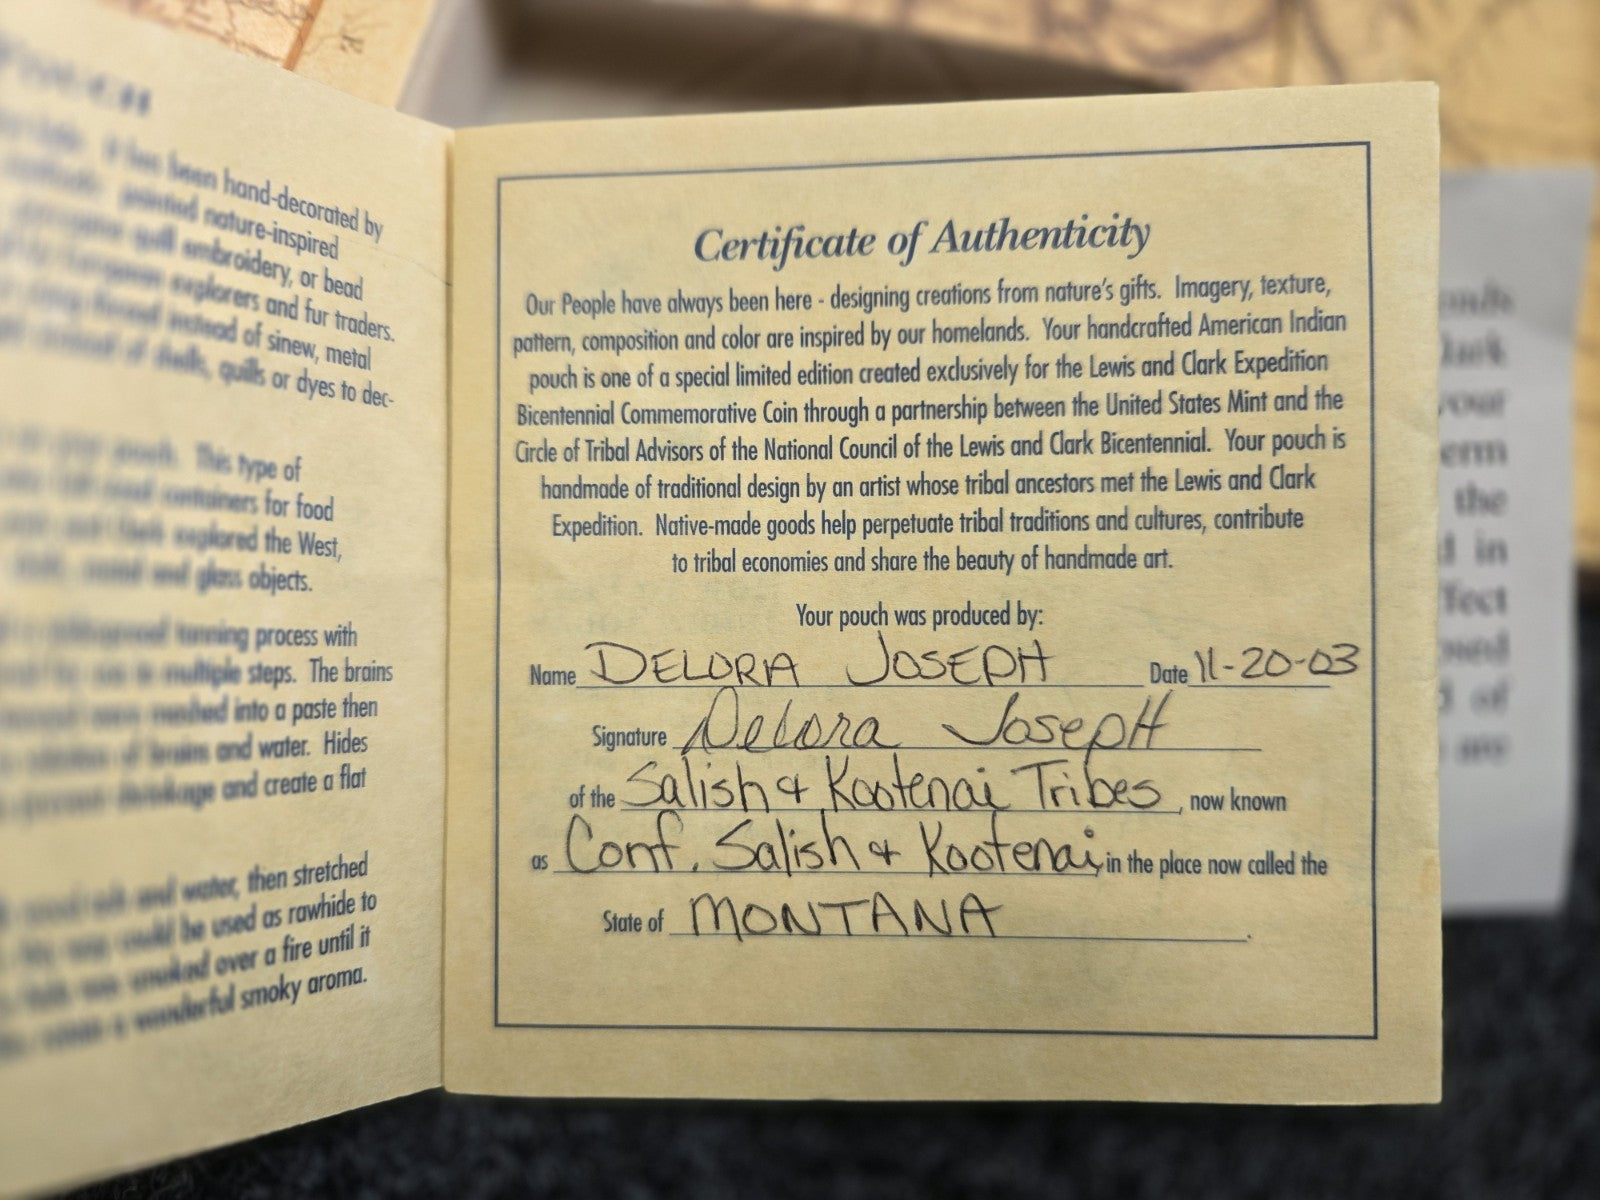 hand-decorated by
nature-inspired
embroidery, or bead
explorers and fur traders.
instead of sinew, metal
quills or dyes to dec-
This type of
containers for food
explored the West,
and glass objects.
tanning process with
multiple steps. The brains
into a paste then
and water. Hides
and create a flat
and water, then stretched
be used as rawhide to
smoked over a fire until it
a wonderful smoky aroma.
Certificate of Authenticity
Our People have always been here - designing creations from nature's gifts. Imagery, texture,
pattern, composition and color are inspired by our homelands. Your handcrafted American Indian
pouch is one of a special limited edition created exclusively for the Lewis and Clark Expedition
Bicentennial Commemorative Coin through a partnership between the United States Mint and the
Circle of Tribal Advisors of the National Council of the Lewis and Clark Bicentennial. Your pouch is
handmade of traditional design by an artist whose tribal ancestors met the Lewis and Clark
Expedition. Native-made goods help perpetuate tribal traditions and cultures, contribute
to tribal economies and share the beauty of handmade art.
Your pouch was produced by:
Name DELORA JOSEPH Date 11-20-03
Signature Delora Joseph
of the Salish & Kootenai Tribes, now known
as Conf. Salish & Kootenai, in the place now called the
State of MONTANA.
the
in
of
are